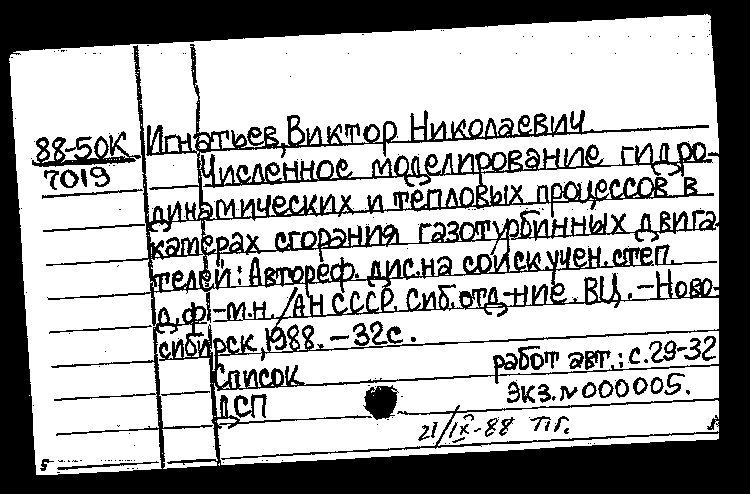 88-50К Игнатьев, Виктор Николаевич
7019 Численное моделирование гидро-
динамических и тепловых процессов в
катерах сгорания газотурбинных двига-
телей: Автореф. дис. на соиск. учен. степ.
д. ф.-м. н. / АН СССР. Сиб. отд-ние. ВЦ. – Ново-
сибирск, 1988. – 32 с.
Список работ авт.: с. 29-32
ДСП Экз. № 000005.
21/IX-88 ТГ.